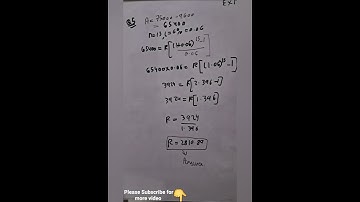 Ex 1
Q5 A = 75000 - 9600
= 65400
n = 13, i = 6% = 0.06
65400 = R[(1+0.06)^13 - 1 / 0.06]
65400 x 0.06 = R[(1.06)^13 - 1]
3924 = R[2.396 - 1]
3924 = R[1.396]
R = 3924 / 1.396
R = 2810.89
Answer
Please Subscribe for 👇
more video